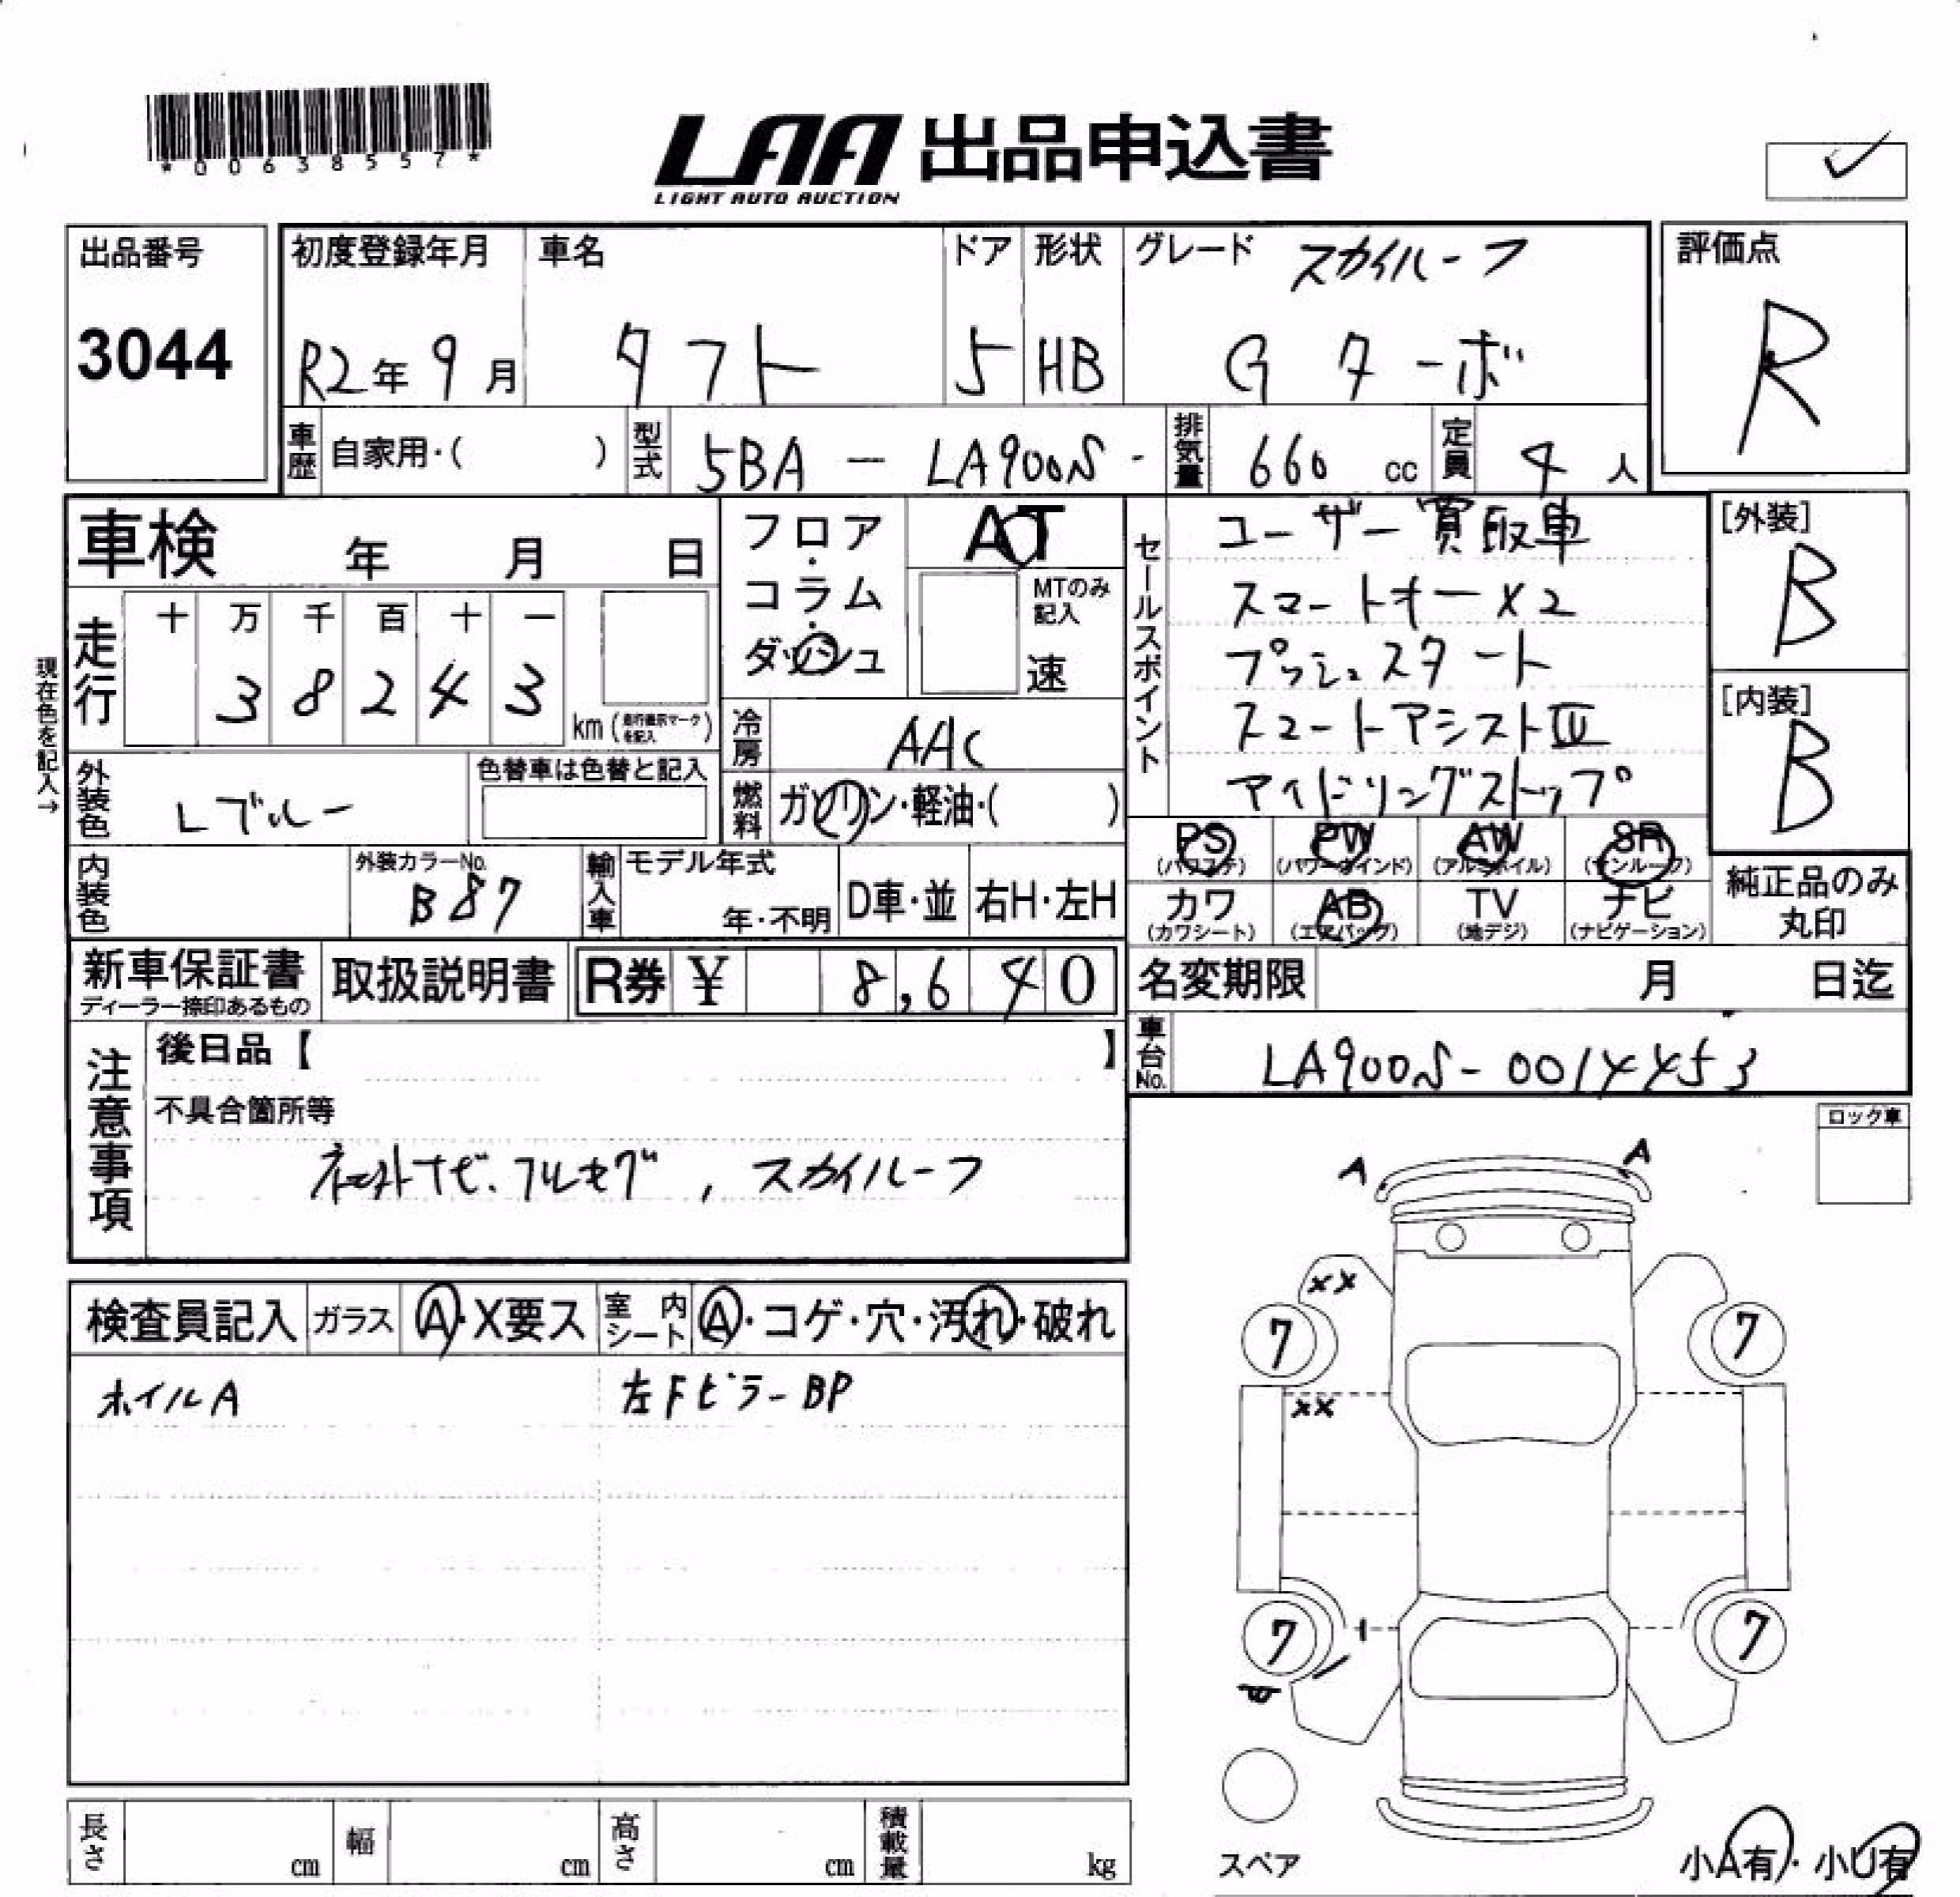 *00638557*
LAA 出品申込書
LIGHT AUTO AUCTION
出品番号
3044
初度登録年月
R2年 9月
車名
タフト
ドア
5
形状
HB
グレード スカイルーフ
Gターボ
評価点
R
車歴 自家用・( )
型式 5BA － LA900S -
排気量 660 cc
定員 4 人
車検 年 月 日
フロア・コラム・ダッシュ
AT
MTのみ記入
速
セールスポイント
ユーザー買取車
スマートキー×2
プッシュスタート
スマートアシストⅢ
アイドリングストップ
[外装]
B
[内装]
B
現在色を記入→
走行
十 万 千 百 十 一
3 8 2 4 3
km (走行表示マークを記入)
冷房 AAC
外装色 Lブルー
色替車は色替と記入
燃料 ガソリン・軽油・( )
PS (パワステ)
PW (パワーウインド)
AW (アルミホイル)
SR (サンルーフ)
カワ (カワシート)
AB (エアバッグ)
TV (地デジ)
ナビ (ナビゲーション)
純正品のみ丸印
内装色
外装カラーNo.
B87
輸入車
モデル年式
年・不明
D車・並
右H・左H
新車保証書
ディーラー捺印あるもの
取扱説明書
R券 ¥ 8,640
名変期限 月 日迄
車台No. LA900S-0014453
注意事項
後日品【 】
不具合箇所等
ナビ、フルセグ, スカイルーフ
ロック車
検査員記入
ガラス A・X要ス
室内シート A・コゲ・穴・汚れ・破れ
ホイルA
左Fピラー BP
A A
XX
7 7
XX
7 7
スペア
小A有・小U有
長さ cm
幅 cm
高さ cm
積載量 kg